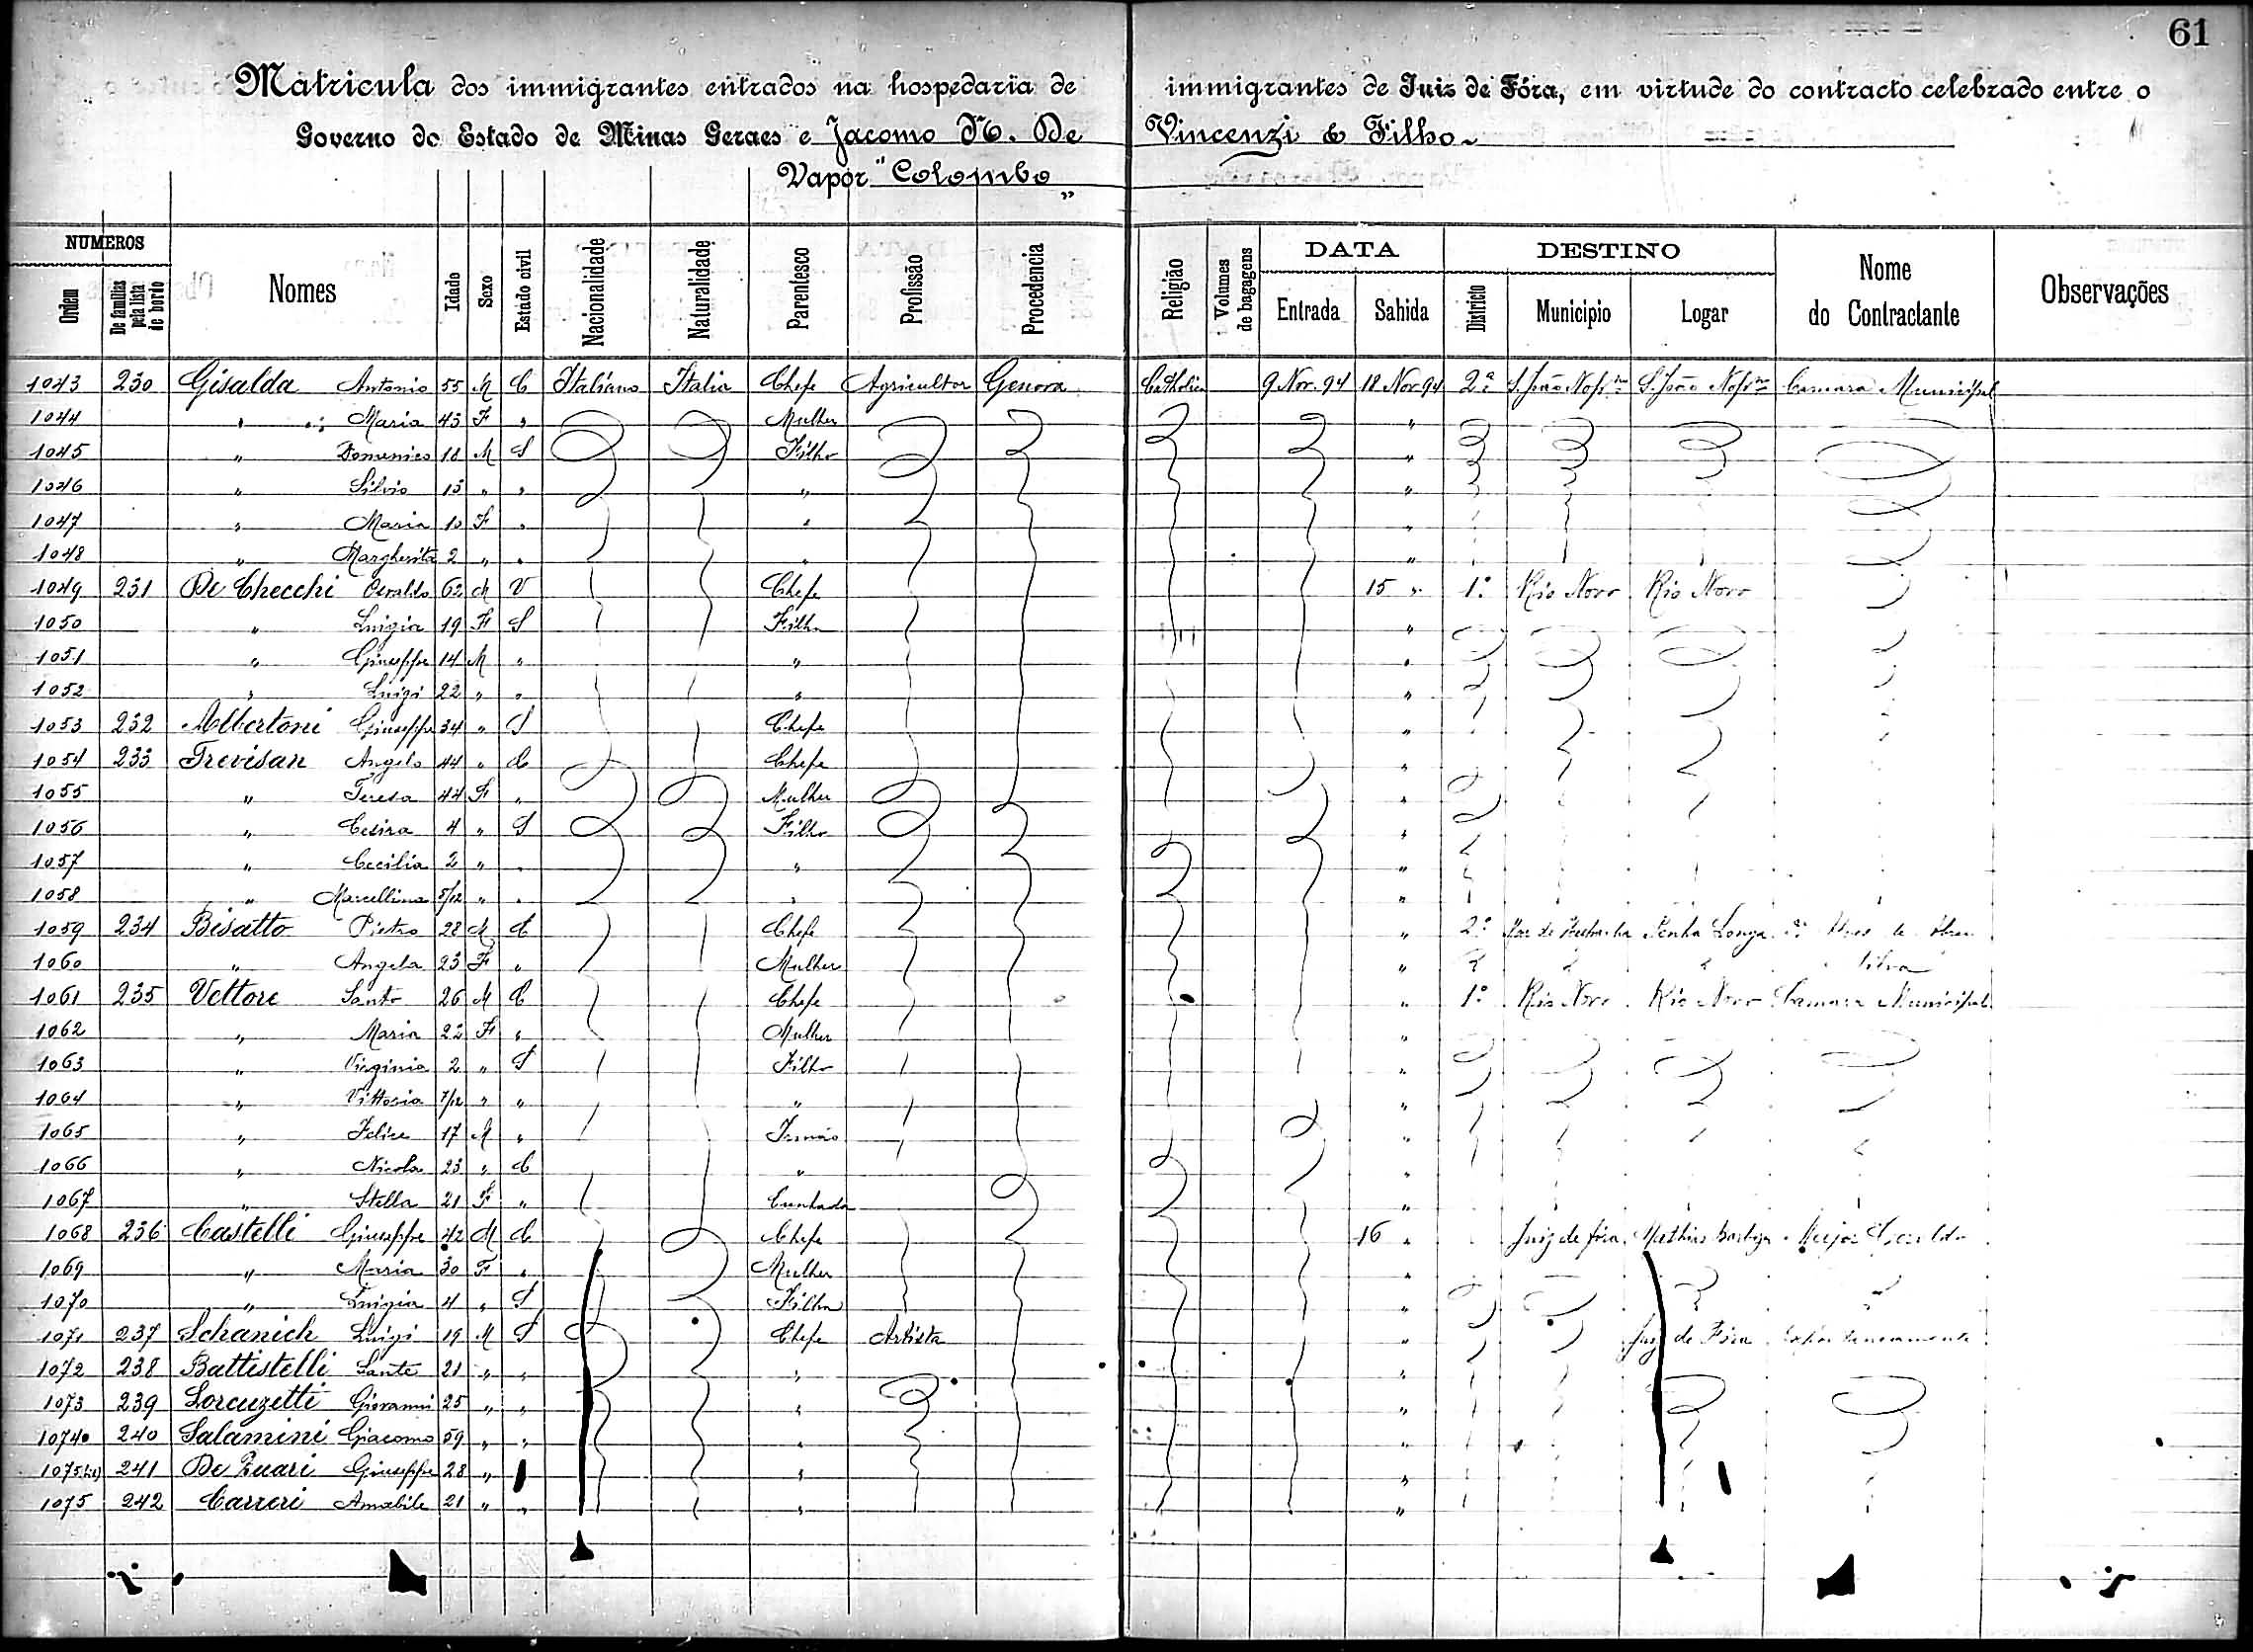 61
Matricula dos immigrantes entrados na hospedaria de immigrantes de Juiz de Fóra, em virtude do contracto celebrado entre o
Governo do Estado de Minas Geraes e Jacomo N. De Vincenzi & Filho
Vapor "Colombo"
NUMEROS DATA DESTINO
Ordem De familias pela lista de bordo Nomes Idade Sexo Estado civil Nacionalidade Naturalidade Parentesco Profissão Procedencia Religião Volumes de bagagens Entrada Sahida Districto Municipio Logar Nome do Contractante Observações
1043 230 Gisalda Antonio 55 M C Italiano Italia Chefe Agricultor Genova Catholica 9 Nov. 94 18 Nov. 94 2ª S. João Nepno S. João Nepno Camara Municipal
1044 " Maria 43 F " Mulher "
1045 " Domenico 18 M S Filho "
1046 " Silvio 13 " " " "
1047 " Maria 10 F " " "
1048 " Margherita 2 " " " "
1049 231 De Checchi 62 M V Chefe 15 " 1º Rio Novo Rio Novo
1050 " Luigia 19 F S Filha "
1051 " Giuseppe 14 M " " "
1052 " Luigi 22 " " " "
1053 232 Albertoni Giuseppe 34 " S Chefe "
1054 233 Trevisan Angelo 44 " C Chefe "
1055 " Teresa 44 F " Mulher "
1056 " Cesira 4 " S Filho "
1057 " Cecilia 2 " " " "
1058 " Marcellina 5/12 " " " "
1059 234 Bisatto Pietro 28 M C Chefe " 2º Penha Longa
1060 " Angela 23 F " Mulher " Silva
1061 235 Vettore Santo 26 M C Chefe " 1º Rio Novo Rio Novo Camara Municipal
1062 " Maria 22 F " Mulher "
1063 " Virginia 2 " S Filho "
1064 " Vittoria 7/12 " " " "
1065 " Felice 17 M " Irmão "
1066 " Nicola 23 " C " "
1067 " Stella 21 F " Cunhada "
1068 236 Castelli Giuseppe 42 M C Chefe 16 " Juiz de fóra Mathias Barboza Major
1069 " Maria 30 F " Mulher "
1070 " Luigia 4 " S Filha "
1071 237 Schanich Luigi 19 M S Chefe Artista " Juiz de Fóra Expontaneamente
1072 238 Battistelli Sante 21 " " " "
1073 239 Lorenzetti Giovanni 25 " " " "
1074 240 Salamini Giacomo 59 " " " "
1075(bis) 241 De Zuari Giuseppe 28 " " "
1075 242 Carreri Amabile 21 " " " "